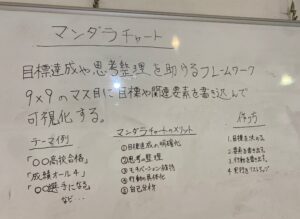 マンダラチャート
目標達成や思考整理を助けるフレームワーク
9×9のマス目に目標や関連要素を書き込んで
可視化する。
テーマ例
「〇〇高校合格」
「成績オール4」
「〇〇選手になる」
など…
マンダラチャートのメリット
①目標達成の明確化
②思考の整理
③モチベーション維持
④行動の具体化
⑤自己分析
1.目標を決める。
2.要素を書き出す。
3.行動を書き出す。
4.実行&